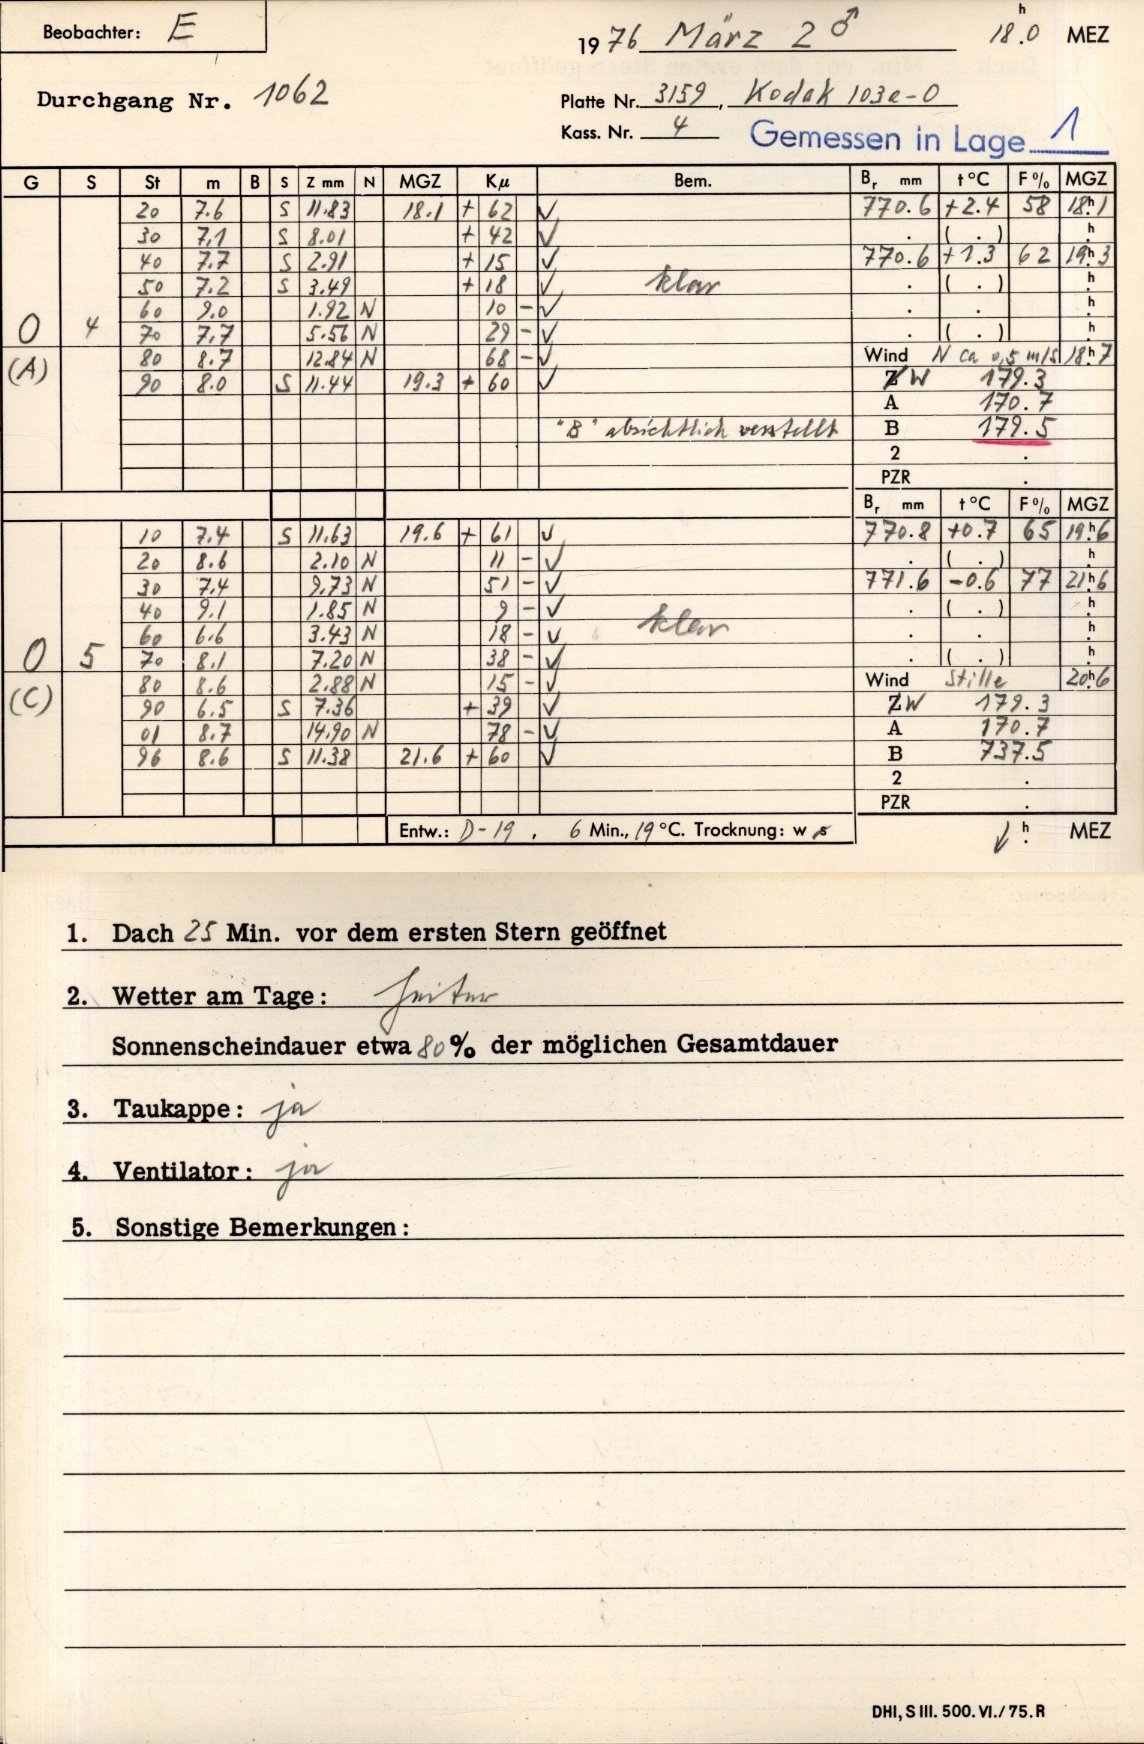 Beobachter: E
1976 März 2 ♂ 18.0 h MEZ
Durchgang Nr. 1062
Platte Nr. 3159, Kodak 103a-O
Kass. Nr. 4
Gemessen in Lage 1
G S St m B S Z mm N MGZ Kμ Bem. Br mm t °C F % MGZ
20 7.6 S 11.83 18.1 + 62 √ 770.6 +2.4 58 18h.1
30 7.1 S 8.01 + 42 √ . ( . ) h.
40 7.7 S 2.91 + 15 √ 770.6 +1.3 62 19h.3
50 7.2 S 3.49 + 18 √ klar . ( . ) h.
60 9.0 1.92 N 10 - √ . . h.
O 4 70 7.7 5.56 N 29 - √ . ( . ) h.
(A) 80 8.7 12.84 N 68 - √ Wind N ca 0,5 m/s 18h.7
90 8.0 S 11.44 19.3 + 60 √ Z W 179.3
A 170.7
"B" absichtlich verstellt B 179.5
2 .
PZR .
Br mm t °C F % MGZ
10 7.4 S 11.63 19.6 + 61 √ 770.8 +0.7 65 19h.6
20 8.6 2.10 N 11 - √ . ( . ) h.
30 7.4 9.73 N 51 - √ 771.6 -0.6 77 21h.6
40 9.1 1.85 N 9 - √ . ( . ) h.
60 6.6 3.43 N 18 - √ klar . . h.
O 5 70 8.1 7.20 N 38 - √ . ( . ) h.
(C) 80 8.6 2.88 N 15 - √ Wind Stille 20h.6
90 6.5 S 7.36 + 39 √ Z W 179.3
01 8.7 14.90 N 78 - √ A 170.7
96 8.6 S 11.38 21.6 + 60 √ B 737.5
2 .
PZR .
Entw.: D-19, 6 Min., 19 °C. Trocknung: w s h. MEZ
1. Dach 25 Min. vor dem ersten Stern geöffnet
2. Wetter am Tage: heiter
Sonnenscheindauer etwa 80% der möglichen Gesamtdauer
3. Taukappe: ja
4. Ventilator: ja
5. Sonstige Bemerkungen:
DHI, S III. 500. VI./75. R